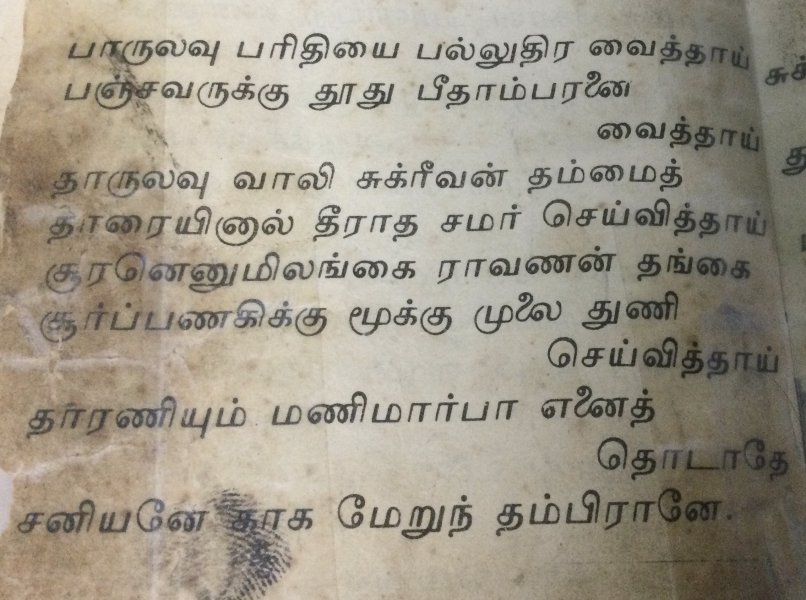 பாருலவு பரிதியை பல்லுதிர வைத்தாய்
பஞ்சவருக்கு தூது பீதாம்பரனை
வைத்தாய்
தாருலவு வாலி சுக்ரீவன் தம்மைத்
தாரையினால் தீராத சமர் செய்வித்தாய்
சூரனெனுமிலங்கை ராவணன் தங்கை
சூர்ப்பணகிக்கு மூக்கு முலை துணி
செய்வித்தாய்
தார்ரணியும் மணிமார்பா எனைத்
தொடாதே
சனியனே காக மேறுந் தம்பிரானே.